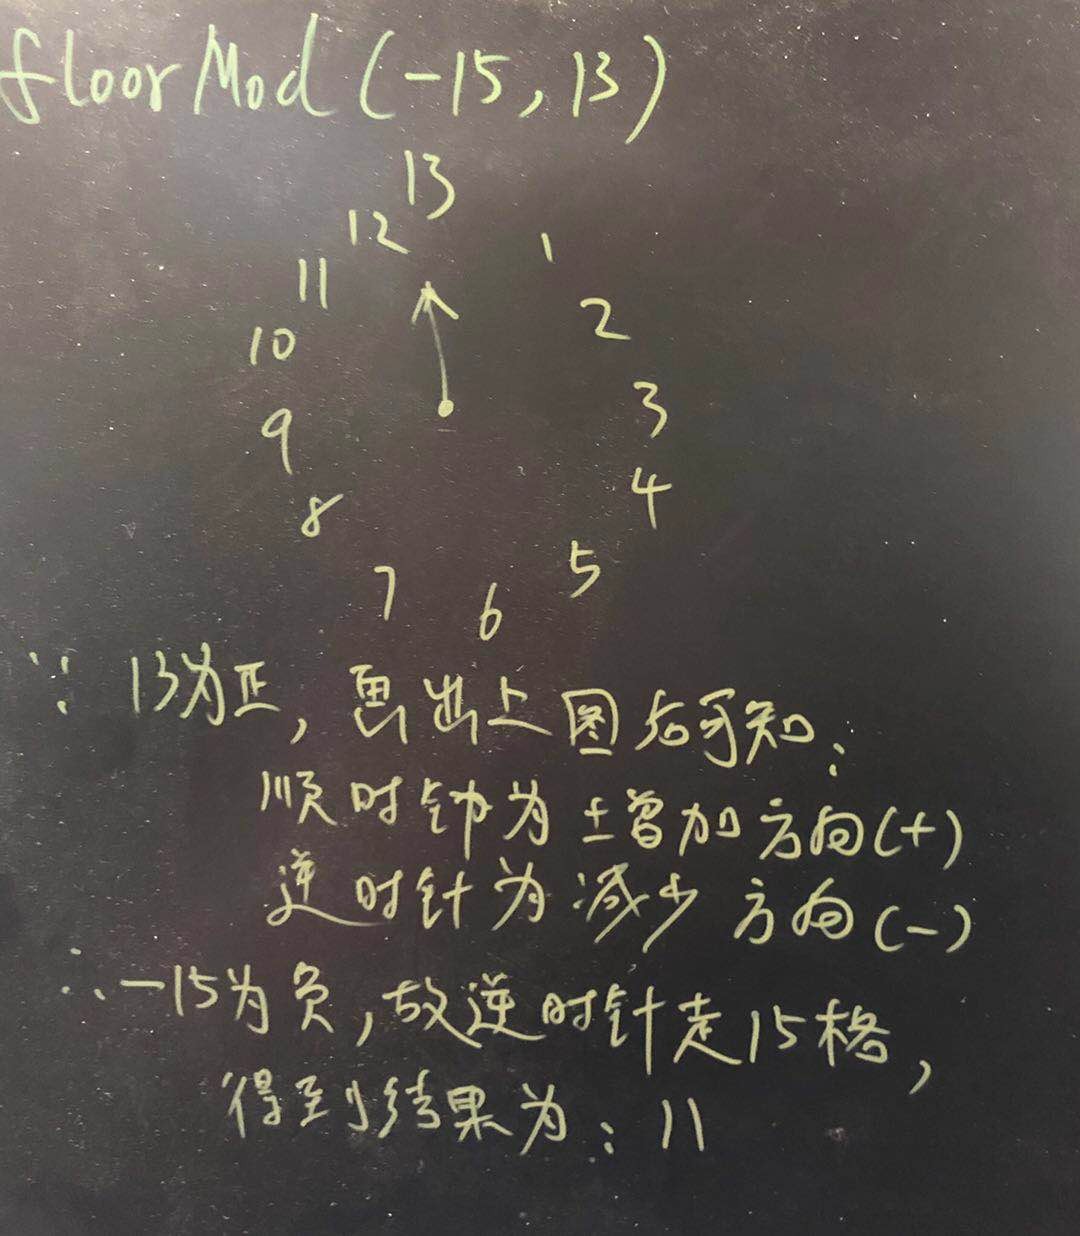 floorMod(-15,13)
13
12
1
11
2
10
3
9
4
8
5
7
6
∵ 13为正,画出上图后可知:
顺时钟为增加方向(+)
逆时针为减少方向(-)
∴ -15为负,故逆时针走15格,
得到结果为:11